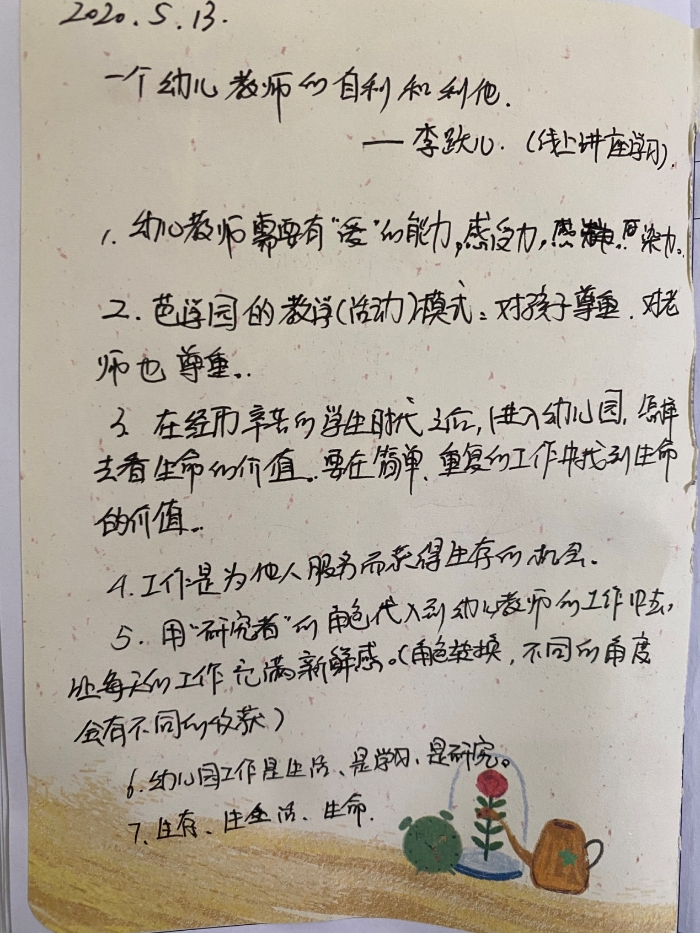 2020.5.13.
一个幼儿教师的自利和利他.
——李跃儿.（线上讲座学习）.
1. 幼儿教师需要有“爱”的能力,感受力, 感染力。
2. 芭学园的教学(活动)模式：对孩子尊重. 对老
师也尊重..
3. 在经历辛苦的学生时代之后, 进入幼儿园, 怎样
去看生命的价值.. 要在简单、重复的工作中找到生命
的价值..
4. 工作是为他人服务而获得生存的机会.
5. 用“研究者”的角色代入到幼儿教师的工作中去,
让每天的工作充满新鲜感。(角色转换, 不同的角度
会有不同的收获)
6. 幼儿园工作是生活、是学习、是研究。
7. 生存、生活、生命.